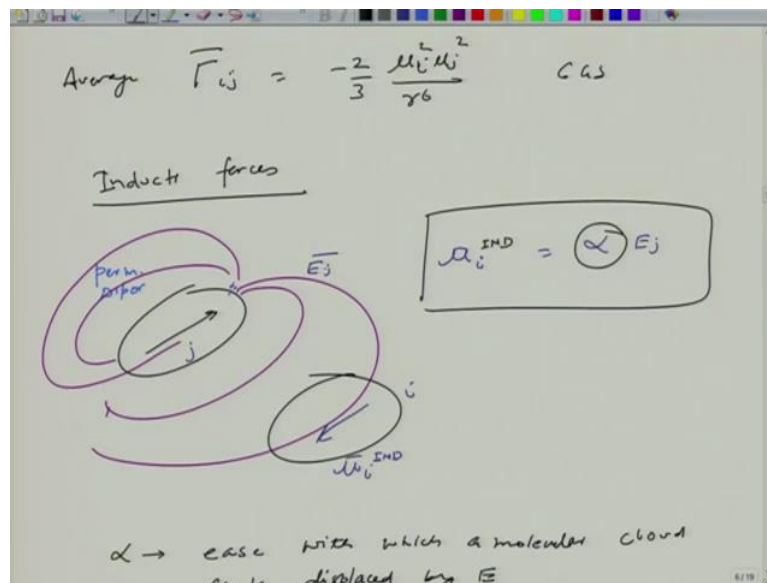 Average Γij = -2/3 μi² μj² / r6 CGS
Inducti forces
perm.
dipor
Ej
j
i
μi IND
μi IND = α Ej
α → ease with which a molecular cloud
displaced by E
6/19